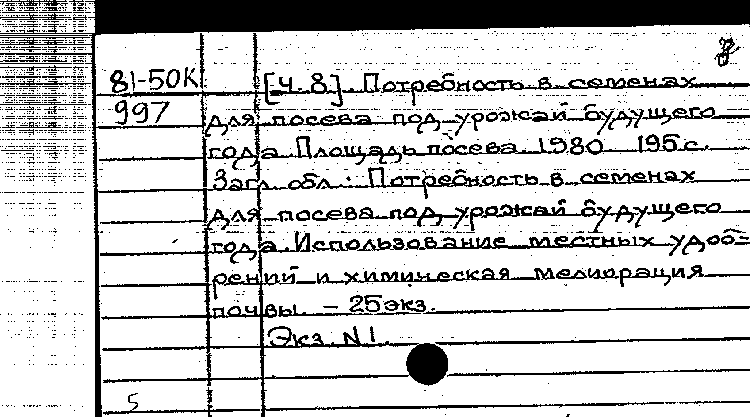 81-50К [Ч. 8]. Потребность в семенах
997 для посева под урожай будущего
года. Площадь посева. 1980 195 с.
Загл. обл.: Потребность в семенах
для посева под урожай будущего
года. Использование местных удоб-
рений и химическая мелиорация
почвы. – 25 экз.
Экз. N 1.
5